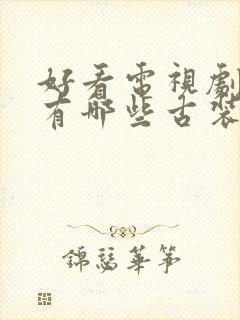 好看電視劇
有哪些古裝
錦瑟華箏